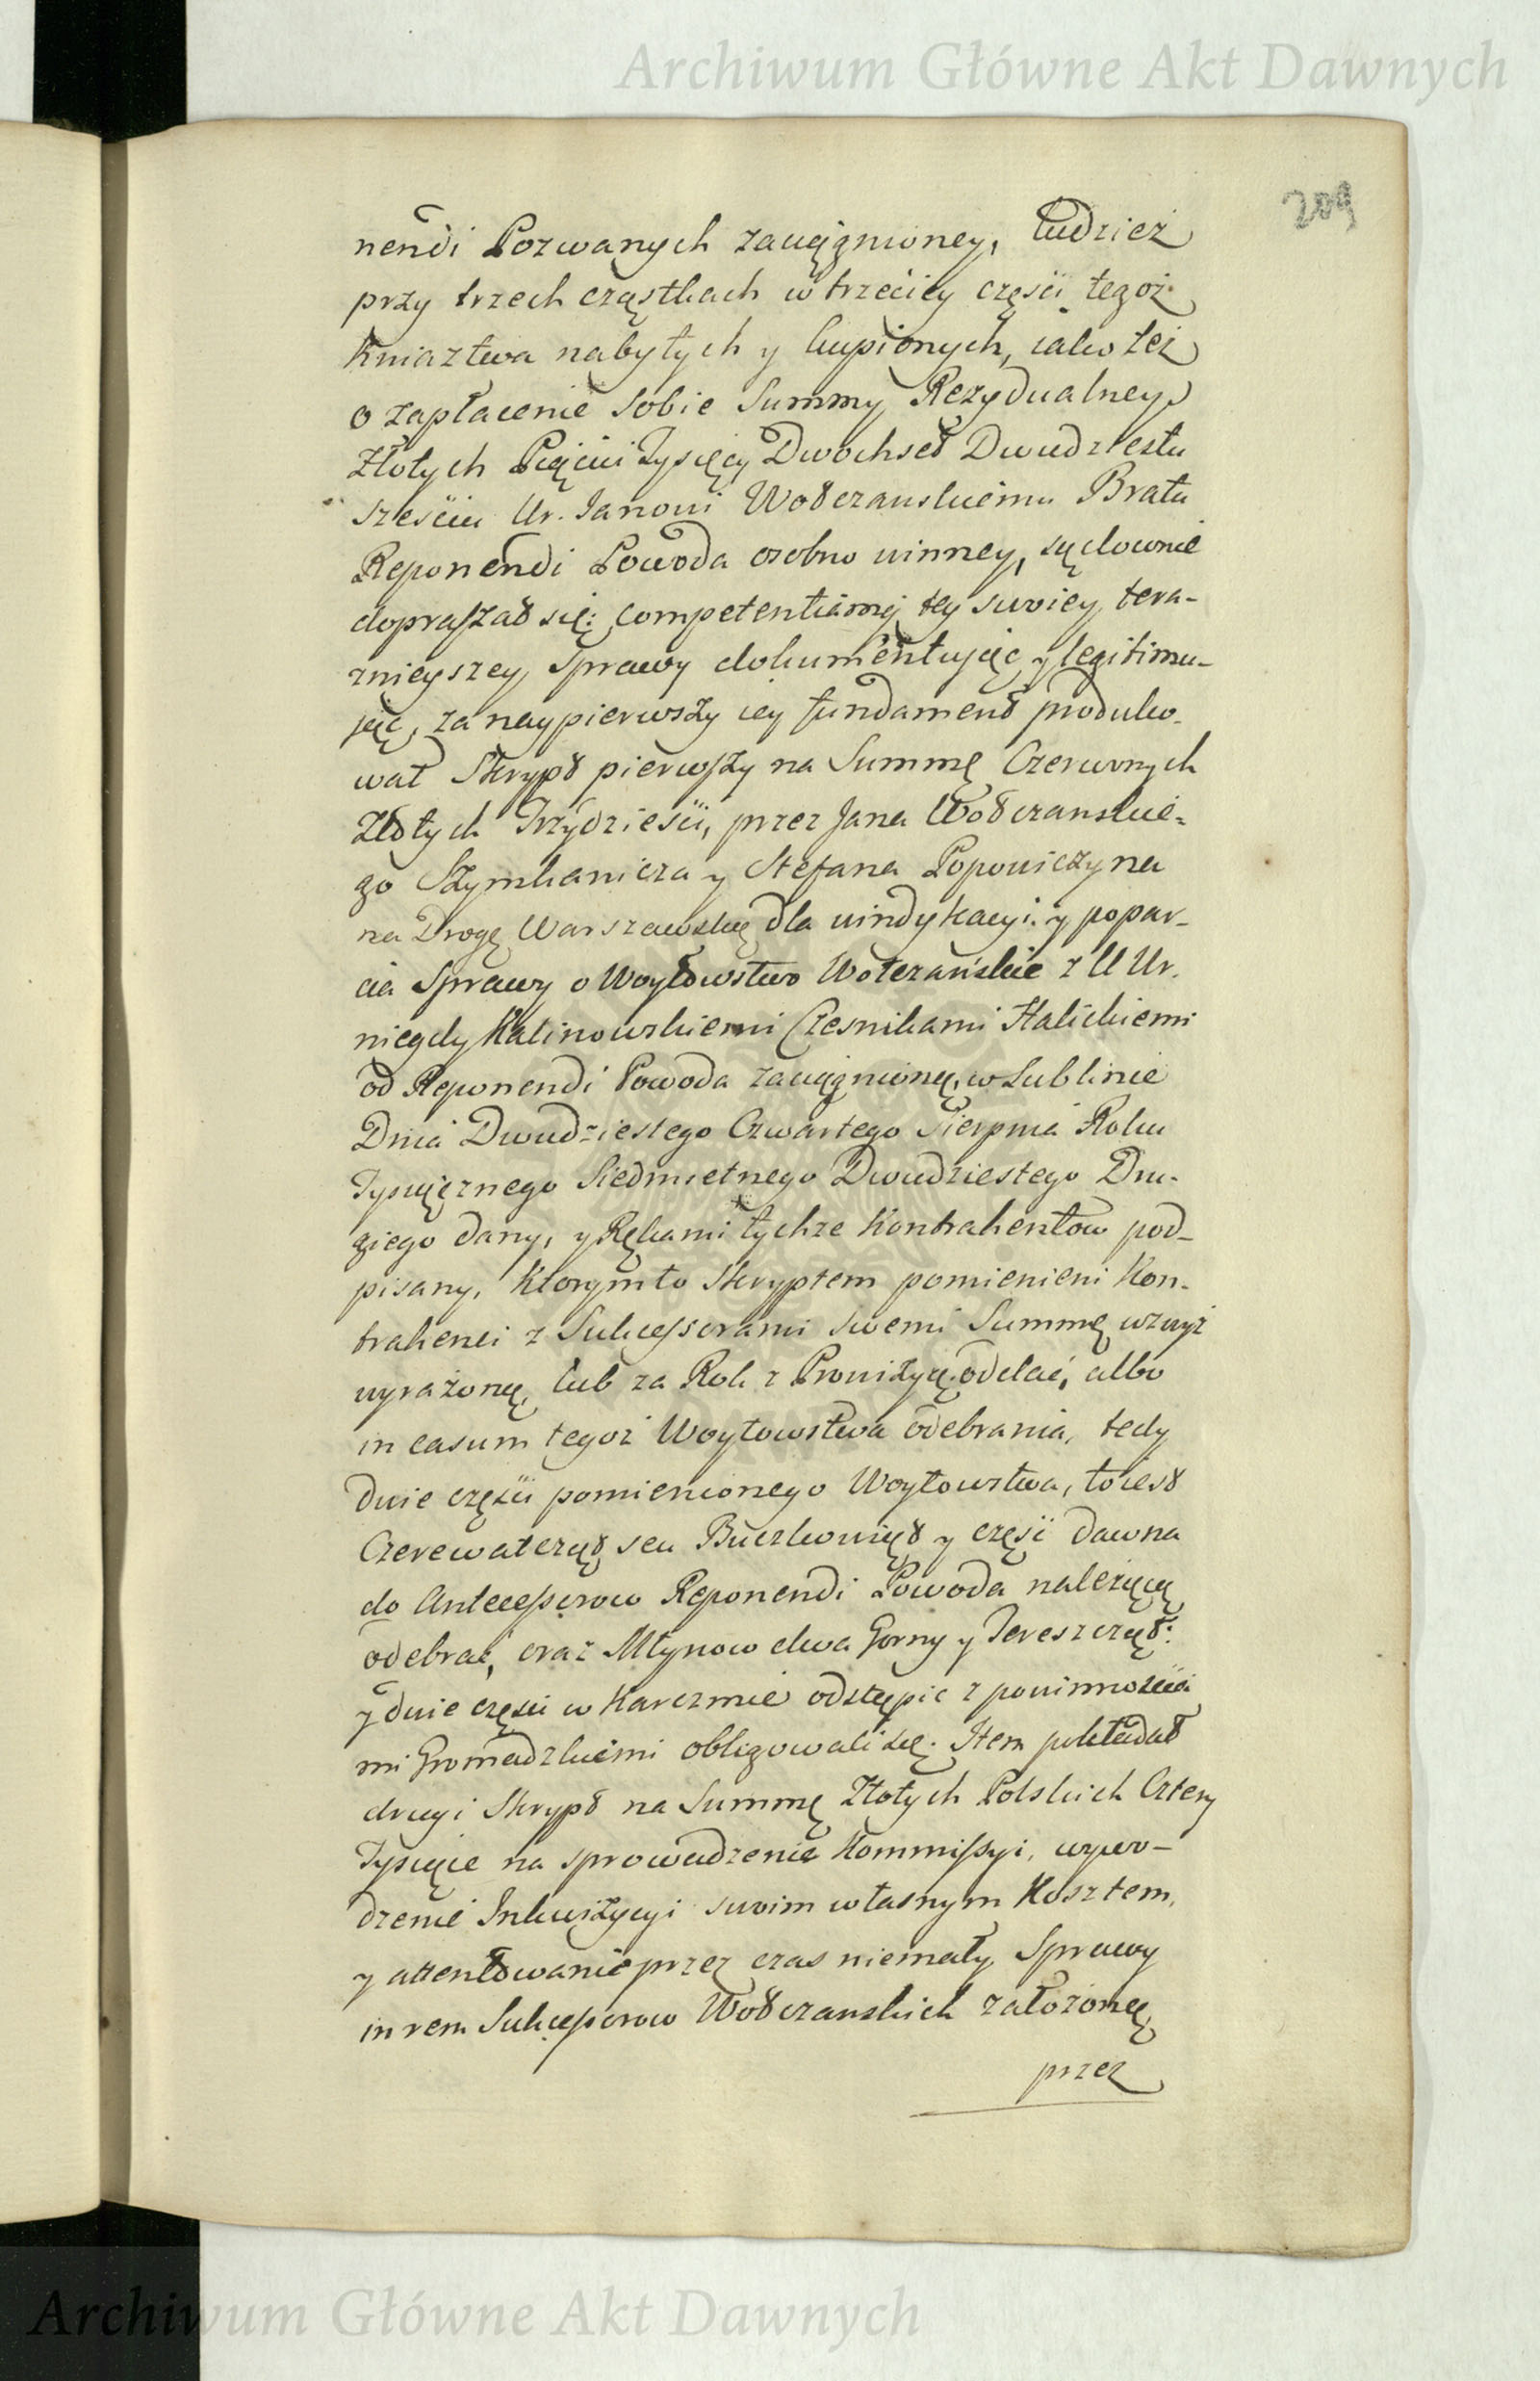 Archiwum Główne Akt Dawnych
209
nendi Pozwanych zaciągnioney, tudzież
przy trzech cząstkach w trzeciey części tegoż
Kniaztwa nabytych y kupionych, iako też
o zapłacenie sobie Summy Rezydualney
Złotych Pięciu Tysięcy Dwochset Dwudziestu
sześciu Ur. Janowi Wołczanskiemu Bratu
Reponendi Powoda osobno winney, sądownie
dopraszał się: competentiamq tey swoiey tera-
znieyszey Sprawy dokumentując y legitimu-
jąc, za naypierwszy iey fundament produko-
wał Skrypt pierwszy na Summę Czerwonych
Złotych Trzydzieści, przez Jana Wołczanskie-
go Szymkanicza y Stefana Popowiczyna
na Drogę Warszawską dla windykacyi y popar-
cia Sprawy o Woytowstwo Wołczańskie z UUr.
niegdy Kalinowskiemi Czesnikami Halickiemi
od Reponendi Powoda zaciągnioną, w Lublinie
Dnia Dwudziestego Czwartego Sierpnia Roku
Tysiącznego Siedmsetnego Dwudziestego Dru-
giego dany, y Rękami tychże Kontrahentow pod-
pisany, Ktorymto Skryptem pomienieni Kon-
trahenci z Sukcessorami swemi Summę wzwyż
wyrażoną, lub za Rok z Prowizyą oddać, albo
in casum tegoż Woytowstwa odebrania, tedy
dwie części pomienionego Woytowstwa, to iest
Czerewatczyą seu Buczkowiąt y częśi dawna
do Antecessorow Reponendi Powoda należącą
odebrać, oraz Młynow dwa Gorny y Tereszcząt:
y dwie części w Karczmie odstąpic z powinnościa
mi Gromadzkiemi obligowali się. Item pokładał
drugi Skrypt na Summę Złotych Polskich Cztery
Tysiące na sprowadzenie Kommissyi, wywo-
dzenie Inkwizycyi swoim własnym Kosztem,
y attentowanie przez czas niemały Sprawy
in rem Sukcessorow Wołczanskich założoną
przez
Archiwum Główne Akt Dawnych